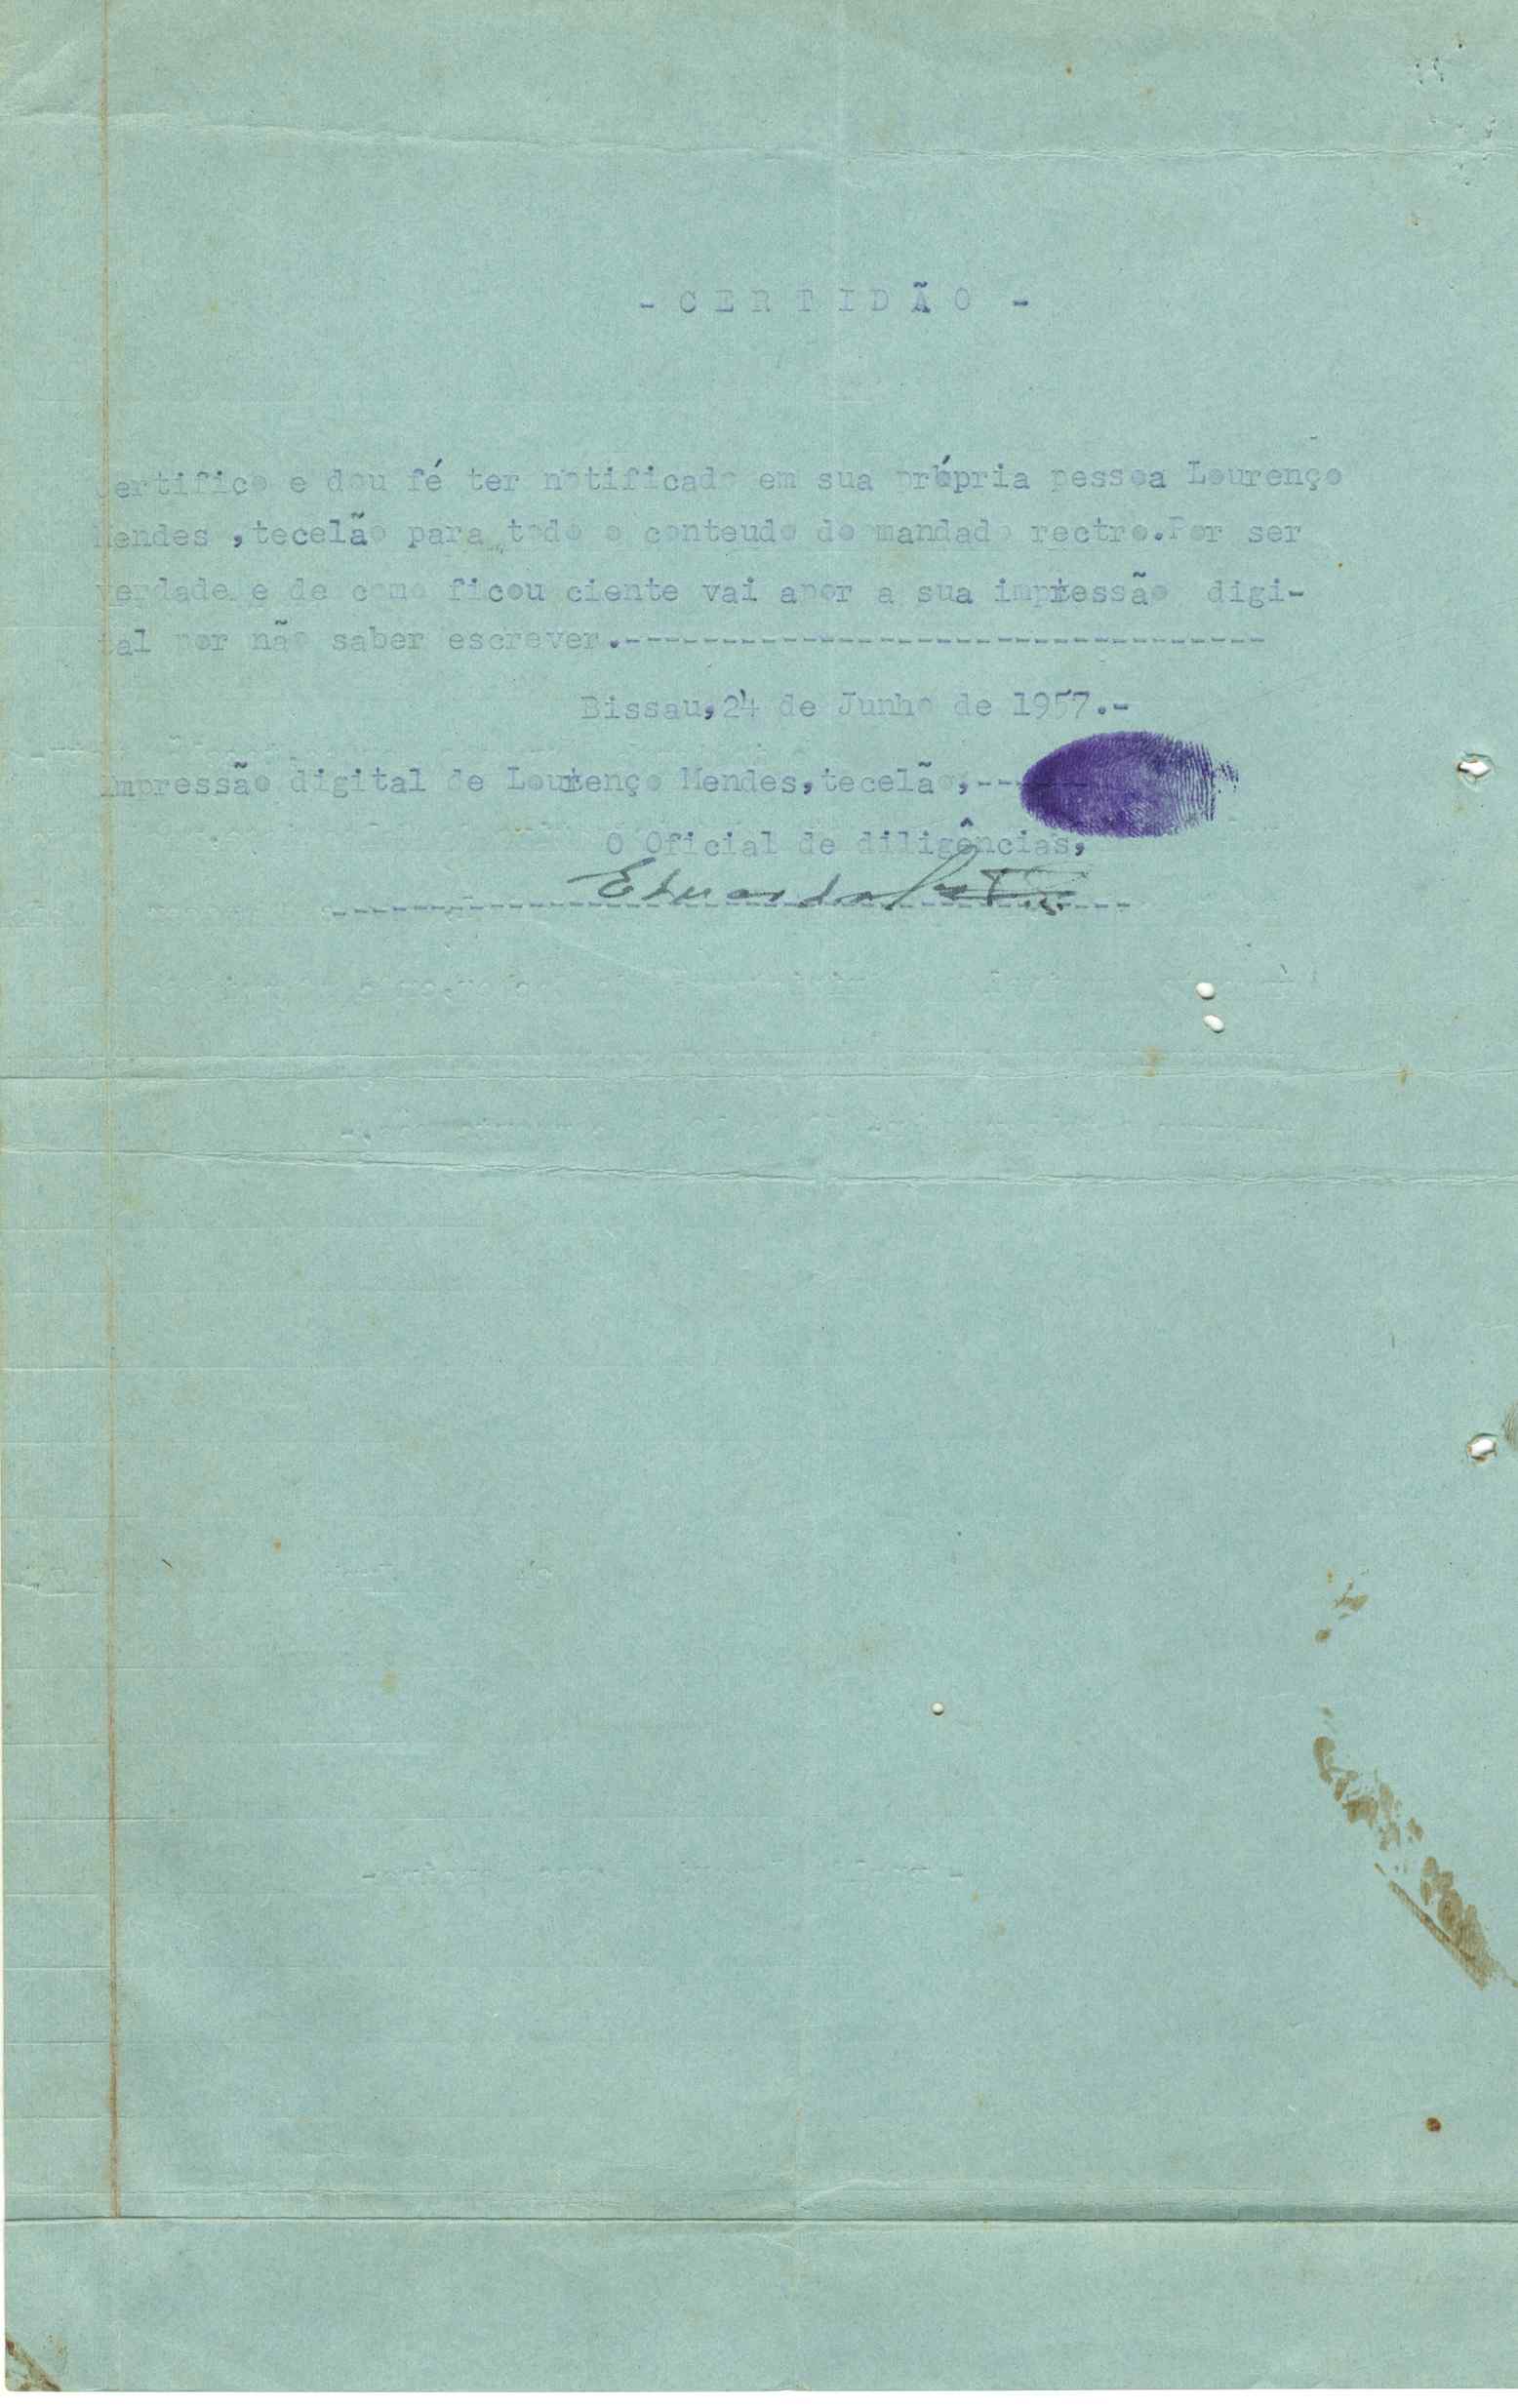 - C E R T I D Ã O -
Certifico e dou fé ter notificado em sua própria pessoa Lourenço
Mendes ,tecelão para todo o conteudo do mandado rectro.Por ser
verdade e de como ficou ciente vai apor a sua impressão digi-
tal por não saber escrever.---------------------------------
Bissau,24 de Junho de 1957.-
Impressão digital de Lourenço Mendes,tecelão,--
O Oficial de diligências,
Eduardo